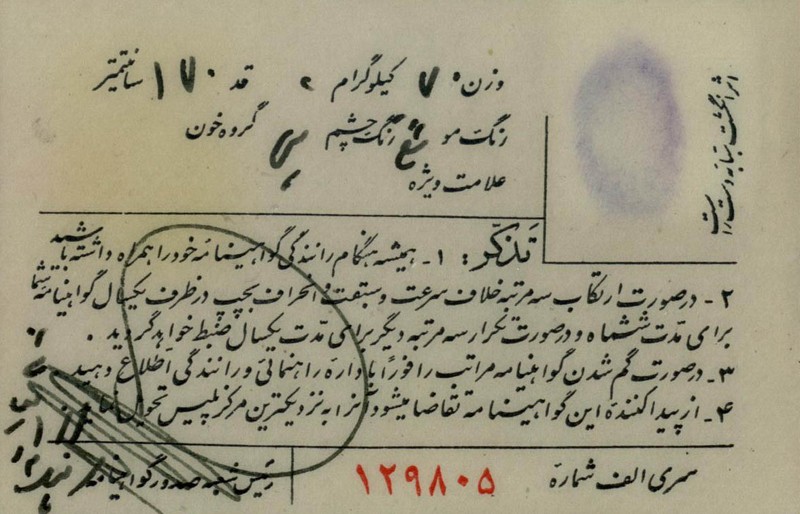 وزن ۷۰ کیلوگرام قد ۱۷۰ سانتیمتر
رنگ مو رنگ چشم گروه خون
علامت ویژه
اثر انگشت سبابه دست راست
تذکر: ۱- همیشه هنگام رانندگی گواهینامه خود را همراه داشته باشید
۲- در صورت ارتکاب سه مرتبه خلاف سرعت و سبقت و انحراف بچپ در ظرف یکسال گواهینامه شما
برای مدت ششماه و در صورت تکرار سه مرتبه دیگر برای مدت یکسال ضبط خواهد گردید .
۳- در صورت گم شدن گواهینامه مراتب را فوراً باداره راهنمائی و رانندگی اطلاع دهید
۴- از پیدا کننده این گواهینامه تقاضا میشود آنرا به نزدیکترین مرکز پلیس تحویل نماید
سری الف شماره ۱۲۹۸۰۵ رئیس شعبه صدور گواهینامه